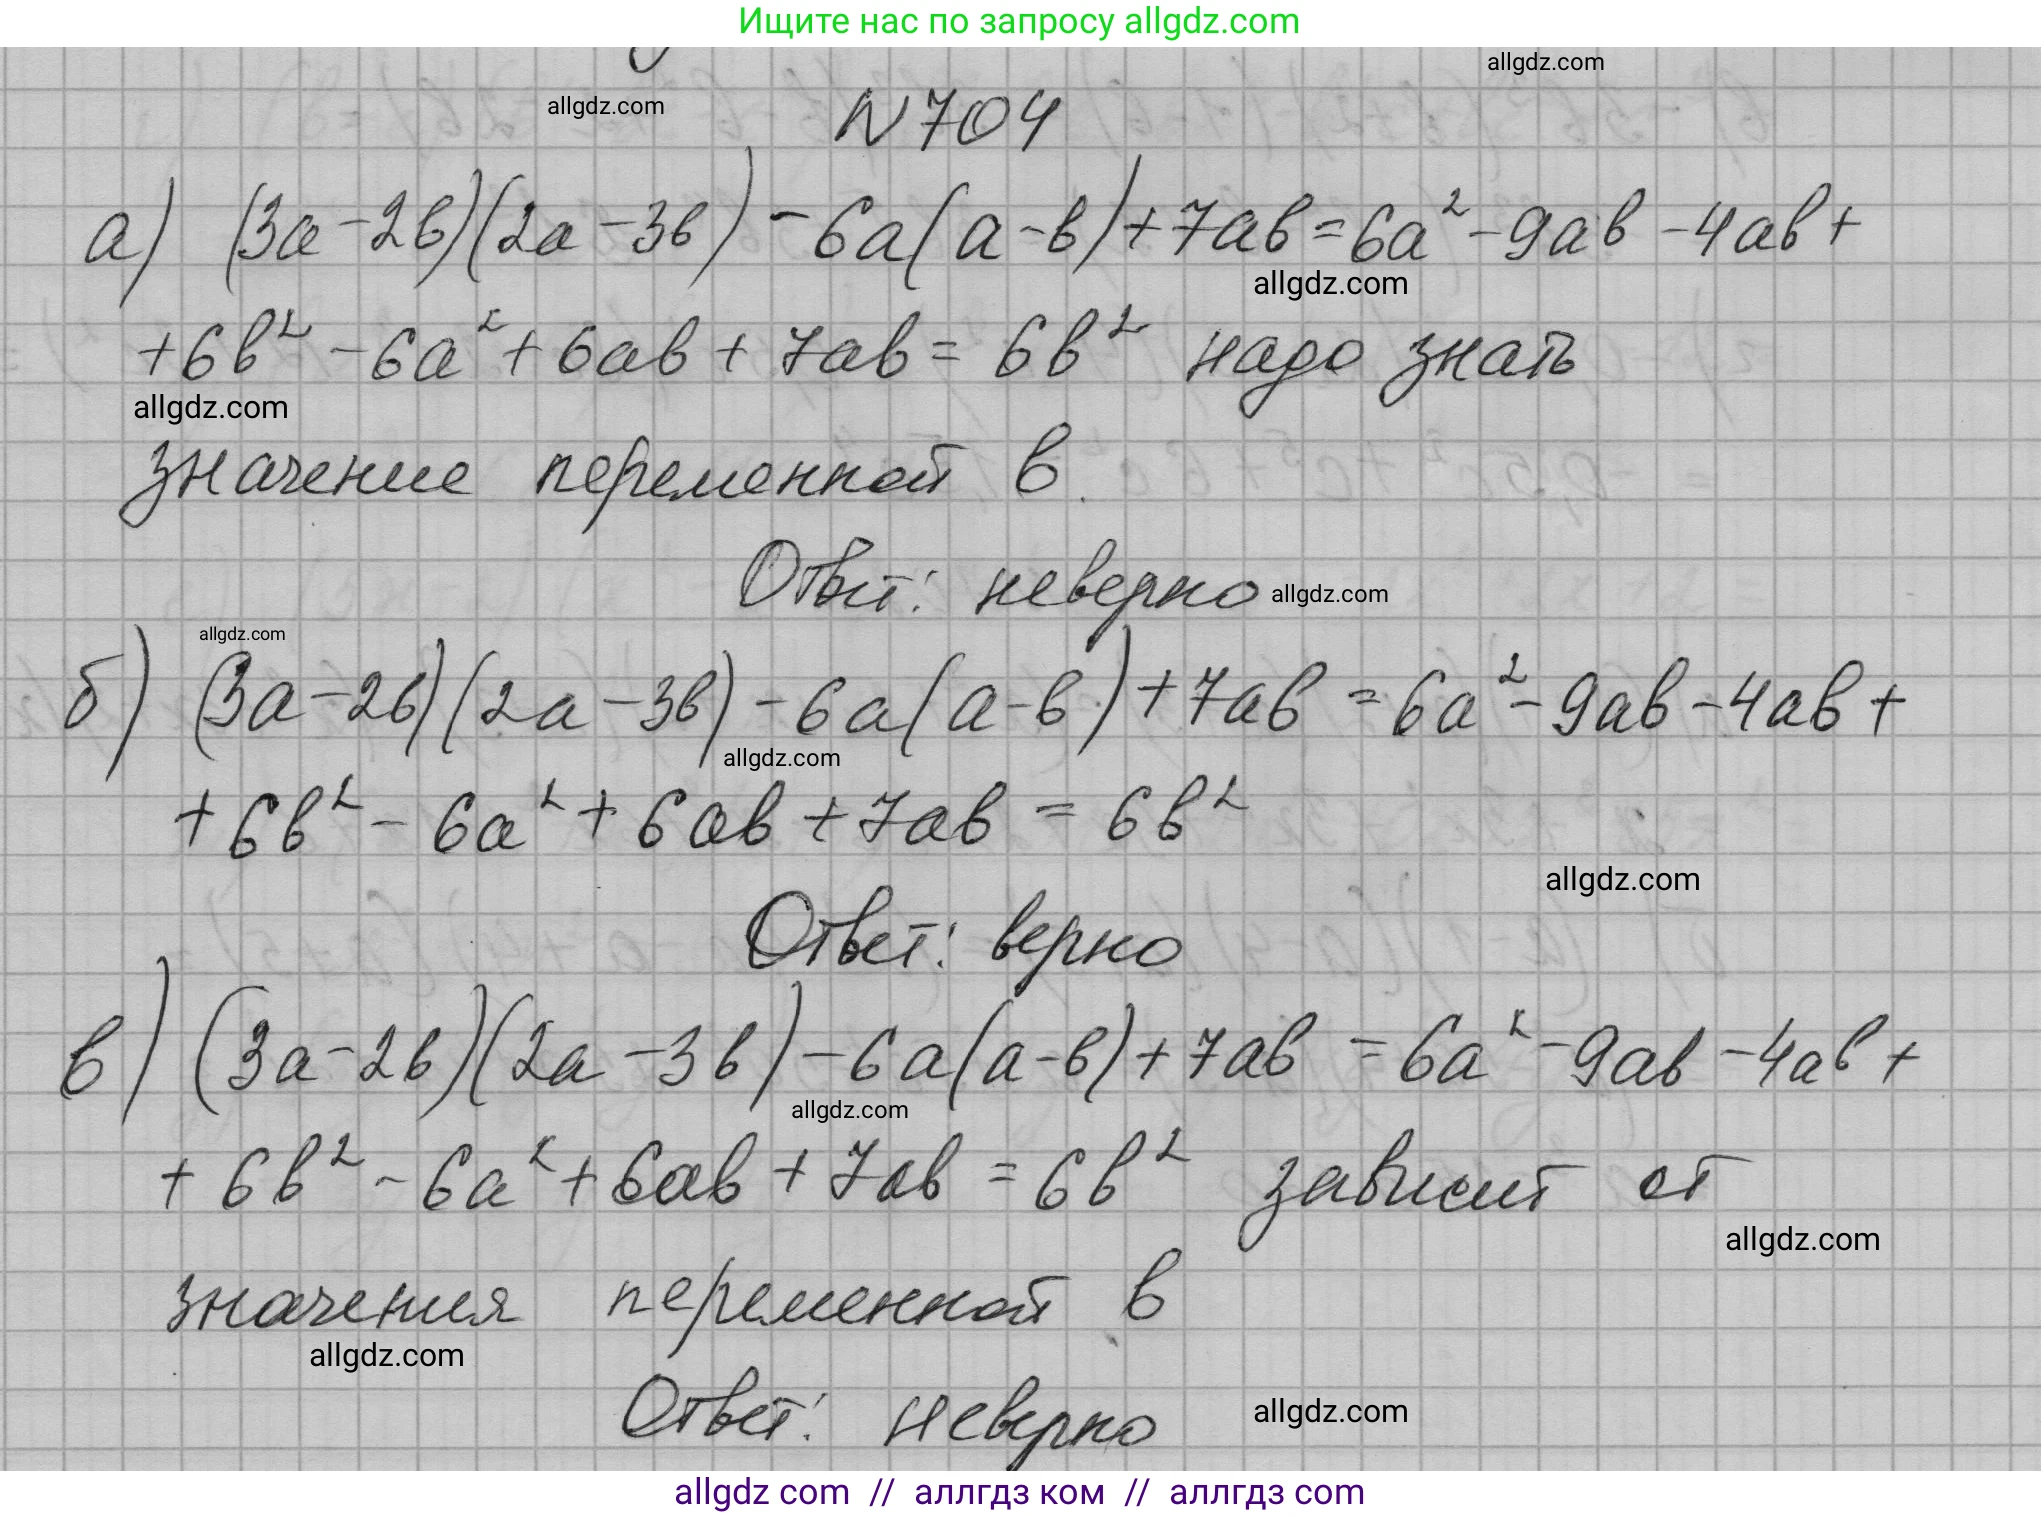 Ищите нас по запросу allgdz.com
allgdz.com
allgdz.com
N 704
а) (3a-2b)(2a-3b)-6a(a-b)+7ab=6a²-9ab-4ab+
allgdz.com
+6b²-6a²+6ab+7ab=6b² надо знать
allgdz.com
значение переменной b.
Ответ: неверно allgdz.com
allgdz.com
б) (3a-2b)(2a-3b)-6a(a-b)+7ab=6a²-9ab-4ab+
allgdz.com
+6b²-6a²+6ab+7ab=6b²
allgdz.com
Ответ: верно
в) (3a-2b)(2a-3b)-6a(a-b)+7ab=6a²-9ab-4ab+
allgdz.com
+6b²-6a²+6ab+7ab=6b² зависит от
allgdz.com
значения переменной b
allgdz.com
Ответ: неверно allgdz.com
allgdz com // аллгдз ком // аллгдз com